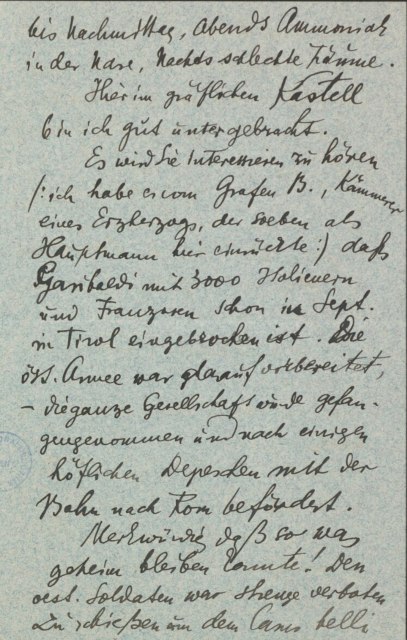 bis Nachmittag, Abends Ammoniak
in der Nase, Nachts schlechte Träume.
Hier im gräflichen Kastell
bin ich gut untergebracht.
Es wird Sie interessieren zu hören
/: ich habe es vom Grafen B., Kämmerer
eines Erzherzogs, der soeben als
Hauptmann hier einrückte :/ daß
Garibaldi mit 3000 Italienern
und Franzosen schon im Sept.
in Tirol eingebrochen ist. Die
öst. Armee war darauf vorbereitet,
– die ganze Gesellschaft wurde gefan-
gengenommen und nach einigen
höflichen Depeschen mit der
Bahn nach Rom befördert.
Merkwürdig daß so was
geheim bleiben konnte! Den
oest. Soldaten war strenge verboten
zu schießen um dem Casus belli